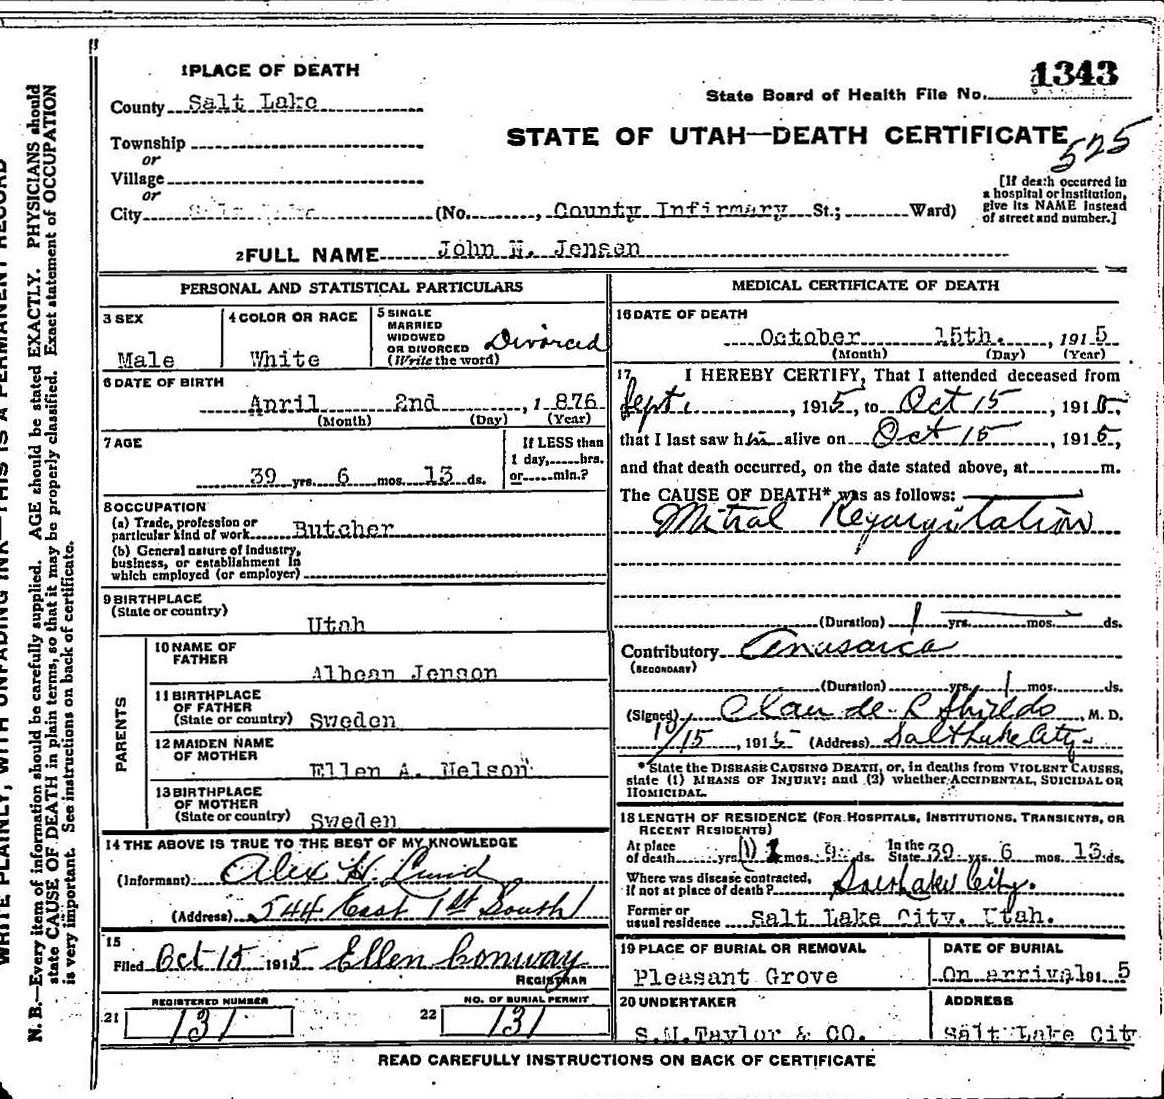 1 PLACE OF DEATH
1343
County Salt Lake
State Board of Health File No.
Township
STATE OF UTAH—DEATH CERTIFICATE
525
or
Village
or
City Salt Lake (No. , County Infirmary St.; Ward)
[If death occurred in
a hospital or institution,
give its NAME instead
of street and number.]
2 FULL NAME John N. Jensen
PERSONAL AND STATISTICAL PARTICULARS
3 SEX
Male
4 COLOR OR RACE
White
5 SINGLE
MARRIED
WIDOWED
OR DIVORCED
(Write the word)
Divorced
6 DATE OF BIRTH
April 2nd , 1 876
(Month) (Day) (Year)
7 AGE
39 yrs. 6 mos. 13 ds.
If LESS than
1 day, hrs.
or min.?
8 OCCUPATION
(a) Trade, profession or
particular kind of work Butcher
(b) General nature of industry,
business, or establishment in
which employed (or employer)
9 BIRTHPLACE
(State or country)
Utah
PARENTS
10 NAME OF
FATHER
Albean Jenson
11 BIRTHPLACE
OF FATHER
(State or country) Sweden
12 MAIDEN NAME
OF MOTHER
Ellen A. Nelson
13 BIRTHPLACE
OF MOTHER
(State or country) Sweden
14 THE ABOVE IS TRUE TO THE BEST OF MY KNOWLEDGE
(Informant) Alex H. Lund
(Address) 544 East 1st South
15
Filed Oct 15 1915 Ellen Conway
REGISTRAR
REGISTERED NUMBER
21 131
NO. OF BURIAL PERMIT
22 131
MEDICAL CERTIFICATE OF DEATH
16 DATE OF DEATH
October 15th. , 1915
(Month) (Day) (Year)
17 I HEREBY CERTIFY, That I attended deceased from
Sept 1 , 1915, to Oct 15 , 1915,
that I last saw him alive on Oct 15 , 1915,
and that death occurred, on the date stated above, at m.
The CAUSE OF DEATH* was as follows:
Mitral Regurgitation
(Duration) 1 yrs. mos. ds.
Contributory Anasarca
(SECONDARY)
(Duration) yrs. 1 mos. ds.
(Signed) Claude R Shields , M. D.
10/15 , 1915 (Address) Salt Lake City
* State the DISEASE CAUSING DEATH, or, in deaths from VIOLENT CAUSES,
state (1) MEANS OF INJURY; and (2) whether ACCIDENTAL, SUICIDAL OR
HOMICIDAL.
18 LENGTH OF RESIDENCE (FOR HOSPITALS, INSTITUTIONS, TRANSIENTS, OR
RECENT RESIDENTS)
At place
of death yrs. 1 mos. ds. In the State 39 yrs. 6 mos. 13 ds.
Where was disease contracted,
if not at place of death? Salt Lake City.
Former or
usual residence Salt Lake City, Utah.
19 PLACE OF BURIAL OR REMOVAL
Pleasant Grove
DATE OF BURIAL
On arrival 191 5
20 UNDERTAKER
S.M.Taylor & CO.
ADDRESS
Salt Lake Cit
READ CAREFULLY INSTRUCTIONS ON BACK OF CERTIFICATE
WRITE PLAINLY, WITH UNFADING INK—THIS IS A PERMANENT RECORD
N. B.—Every item of information should be carefully supplied. AGE should be stated EXACTLY. PHYSICIANS should
state CAUSE OF DEATH in plain terms, so that it may be properly classified. Exact statement of OCCUPATION
is very important. See instructions on back of certificate.